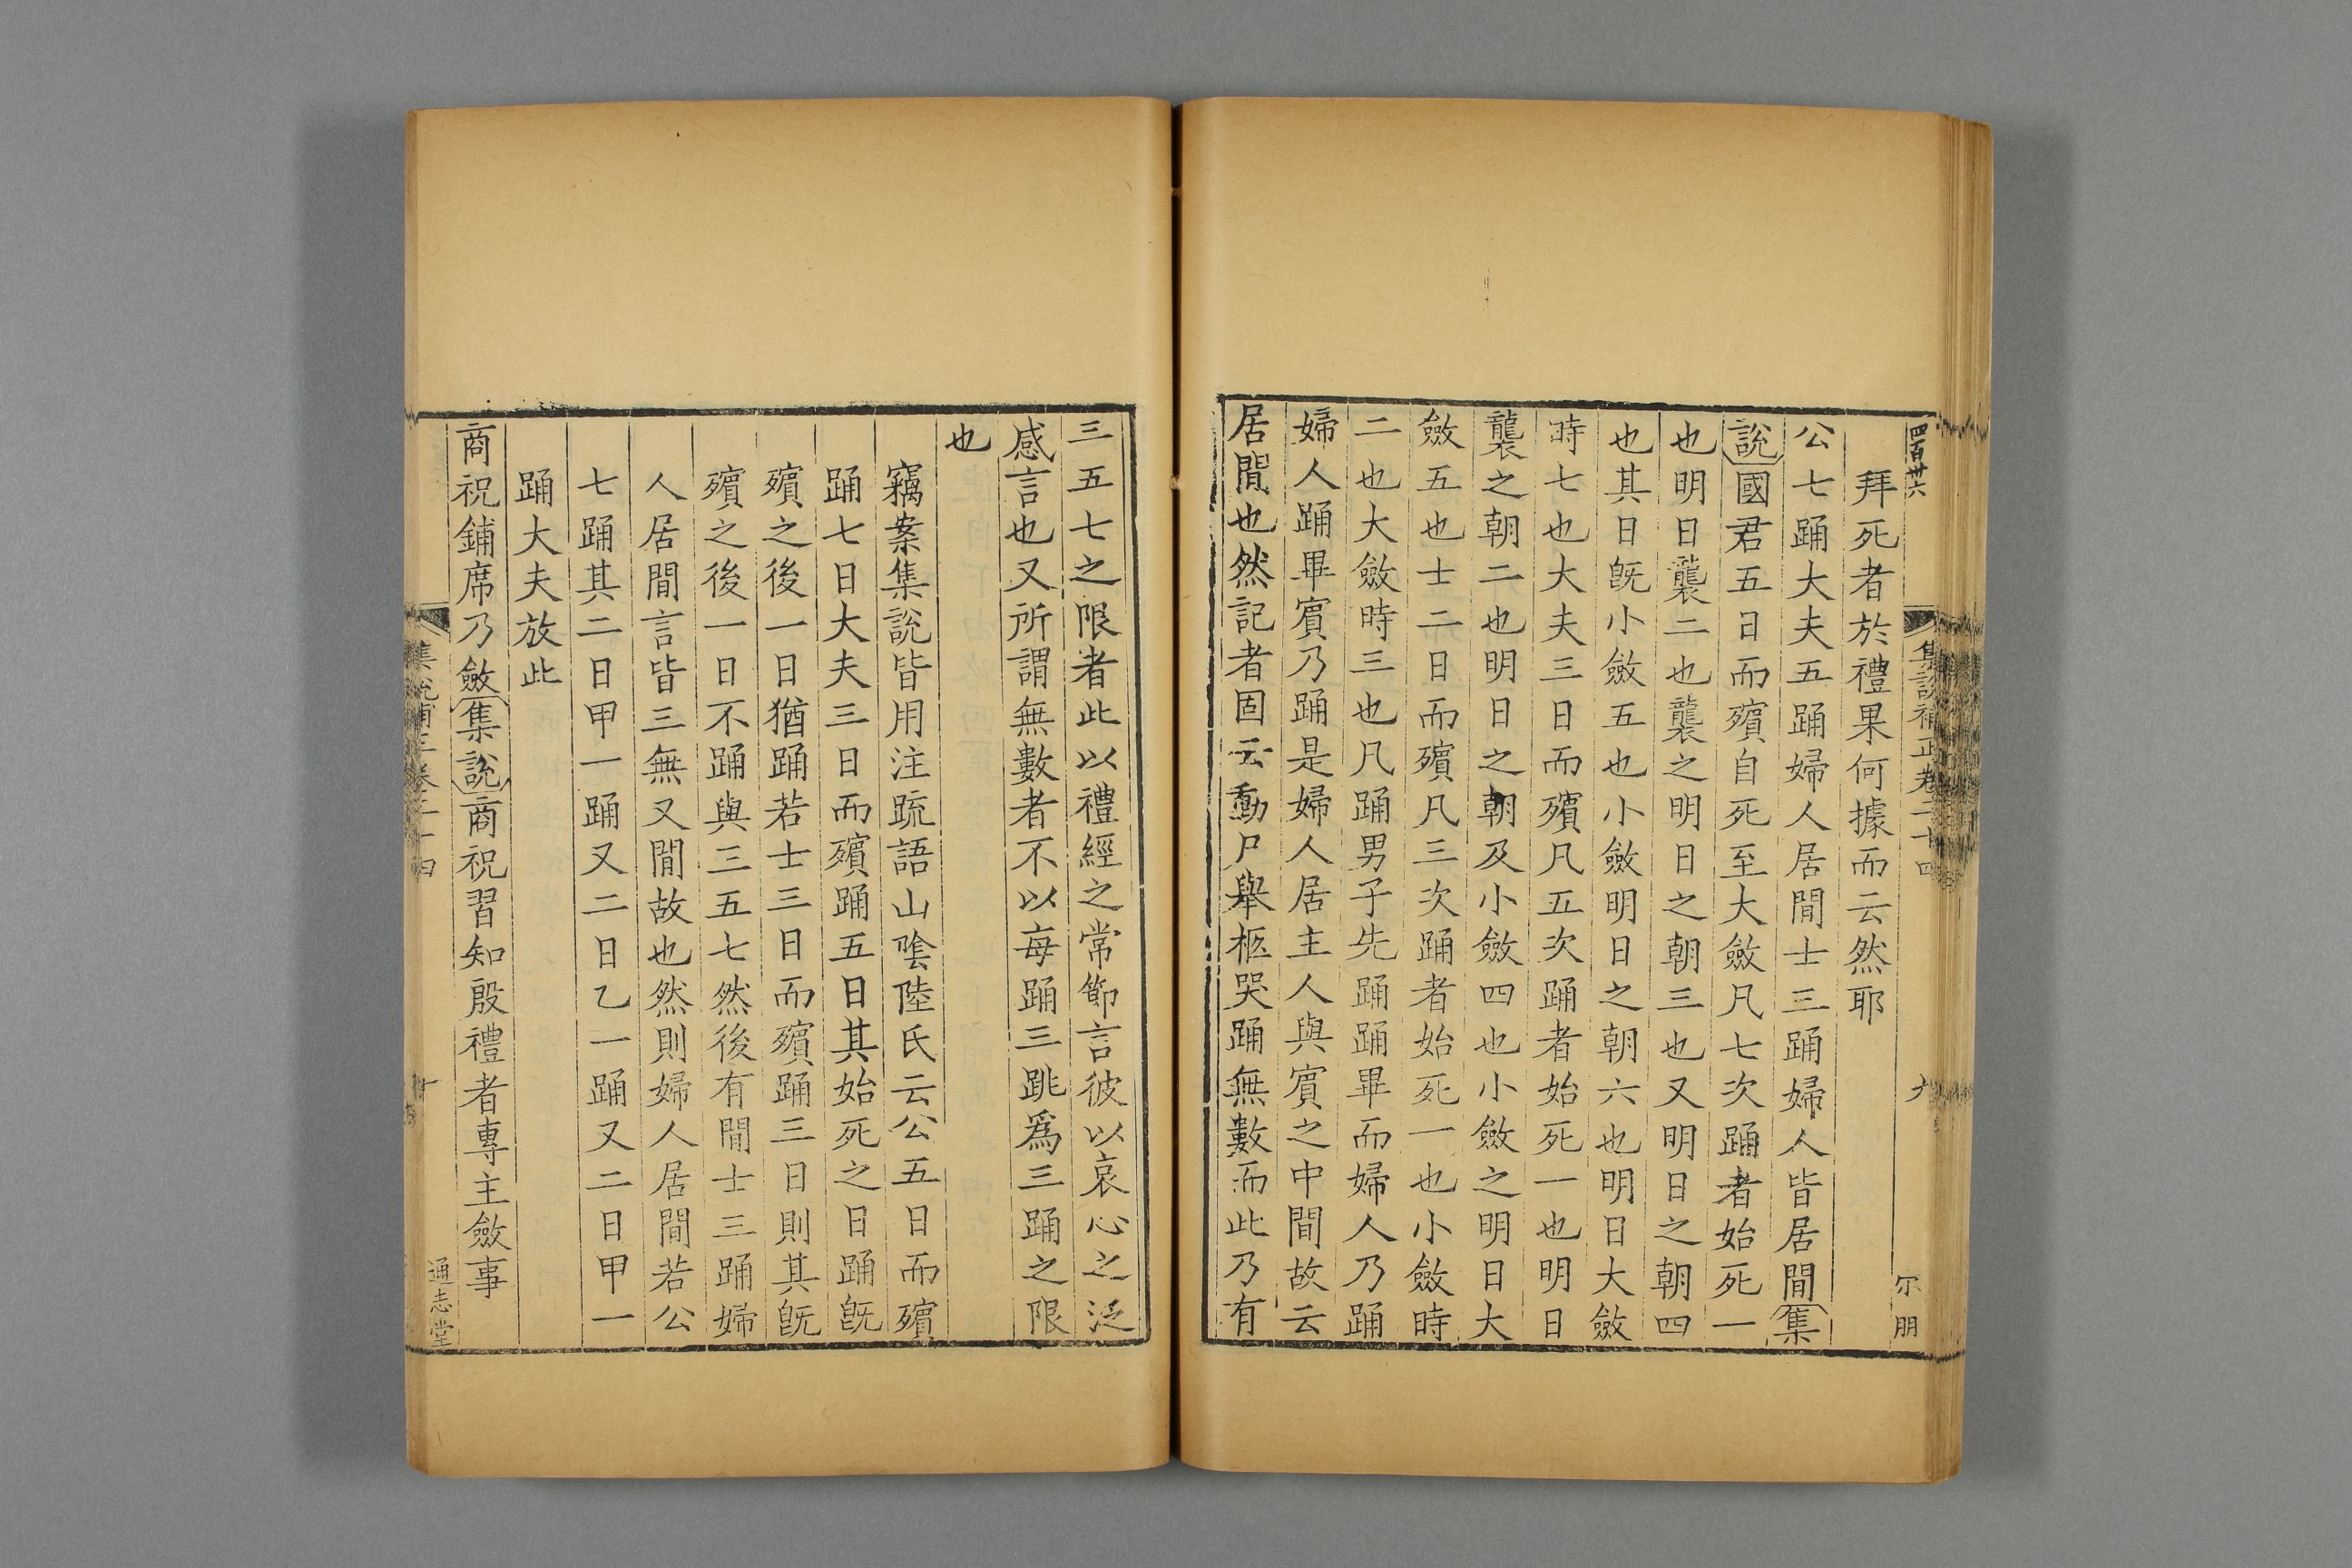 四百卅六
集說補正卷二十四
九
尓朋
拜死者於禮果何據而云然耶
公七踊大夫五踊婦人居閒士三踊婦人皆居閒集
說國君五日而殯自死至大斂凡七次踊者始死一
也明日襲二也襲之明日之朝三也又明日之朝四
也其日旣小斂五也小斂明日之朝六也明日大斂
時七也大夫三日而殯凡五次踊者始死一也明日
襲之朝二也明日之朝及小斂四也小斂之明日大
斂五也士二日而殯凡三次踊者始死一也小斂時
二也大斂時三也凡踊男子先踊踊畢而婦人乃踊
婦人踊畢賓乃踊是婦人居主人與賓之中閒故云
居閒也然記者固云動尸舉柩哭踊無數而此乃有
三五七之限者此以禮經之常節言彼以哀心之泛
感言也又所謂無數者不以每踊三跳爲三踊之限
也
竊案集說皆用注疏語山陰陸氏云公五日而殯
踊七日大夫三日而殯踊五日其始死之日踊旣
殯之後一日猶踊若士三日而殯踊三日則其旣
殯之後一日不踊與三五七然後有閒士三踊婦
人居閒言皆三無又閒故也然則婦人居閒若公
七踊其二日甲一踊又二日乙一踊又二日甲一
踊大夫放此
商祝鋪席乃斂集說商祝習知殷禮者專主斂事
集說補正卷二十四
十
通志堂